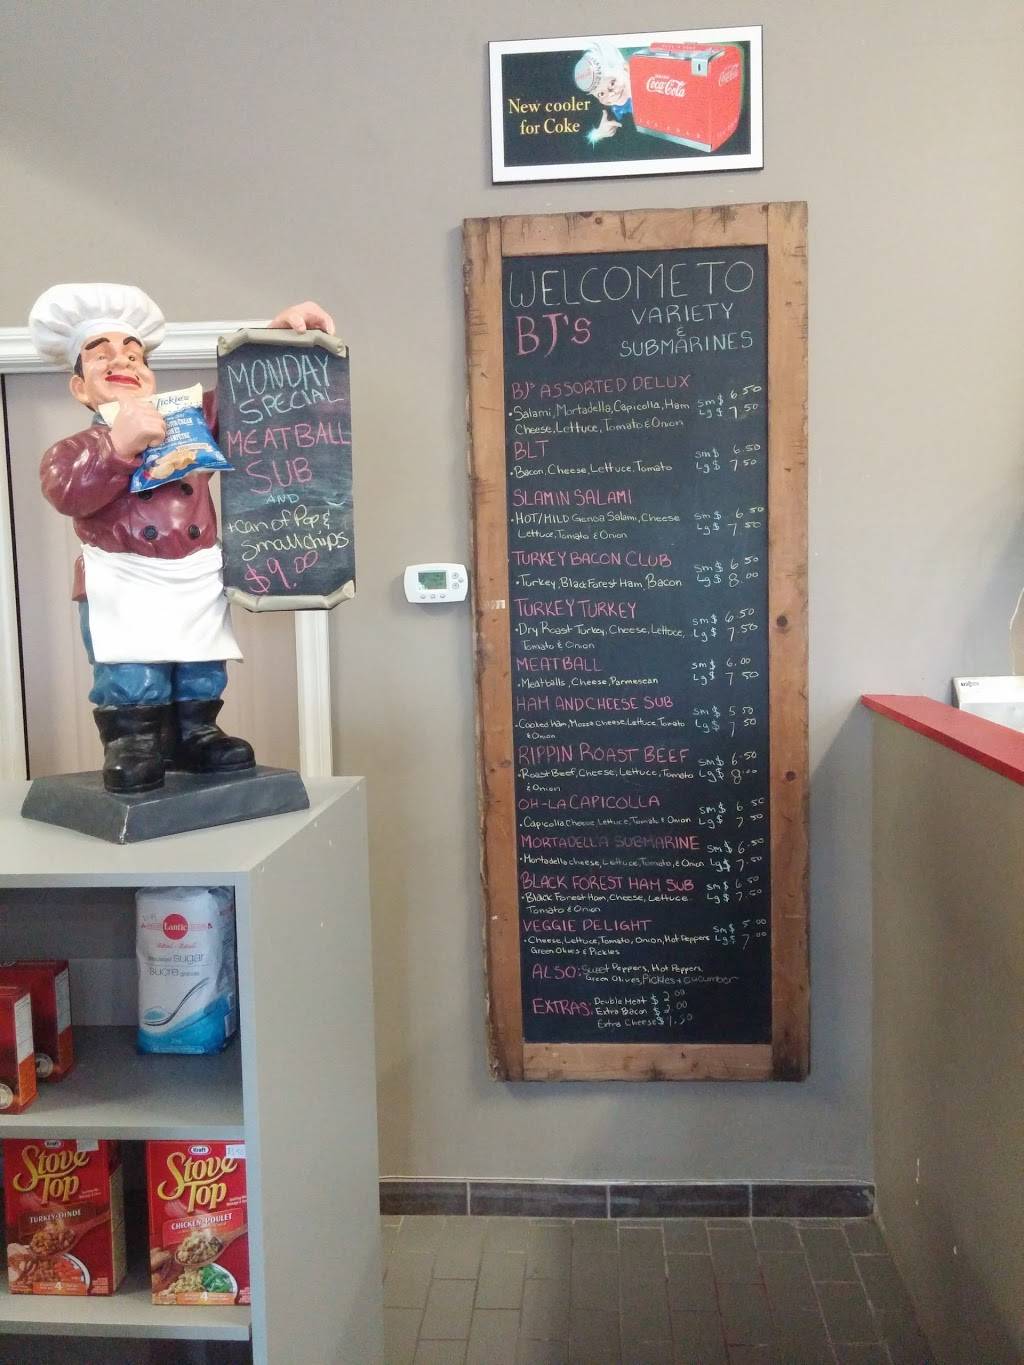 New cooler
for Coke
Coca-Cola
Coca-Cola
WELCOME TO
BJ's
VARIETY
&
SUBMARINES
BJ's ASSORTED DELUX
•Salami, Mortadella, Capicolla, Ham sm $ 6.50
Cheese, Lettuce, Tomato & Onion Lg $ 7.50
BLT sm $ 6.50
•Bacon, Cheese, Lettuce, Tomato Lg $ 7.50
SLAMIN SALAMI
•HOT/MILD Genoa Salami, Cheese sm $ 6.50
Lettuce, Tomato & Onion Lg $ 7.50
TURKEY BACON CLUB sm $ 6.50
•Turkey, Black Forest Ham, Bacon Lg $ 8.00
TURKEY TURKEY sm $ 6.50
•Dry Roast Turkey, Cheese, Lettuce, Lg $ 7.50
Tomato & Onion
MEATBALL sm $ 6.00
•Meatballs, Cheese, Parmesean Lg $ 7.50
HAM AND CHEESE SUB sm $ 5.50
•Cooked Ham, Mozza Cheese, Lettuce, Tomato Lg $ 7.50
& Onion
RIPPIN ROAST BEEF sm $ 6.50
•Roast Beef, Cheese, Lettuce, Tomato Lg $ 8.00
& Onion
OH-LA CAPICOLLA sm $ 6.50
•Capicolla, Cheese, Lettuce, Tomato & Onion Lg $ 7.50
MORTADELLA SUBMARINE sm $ 6.50
•Mortadella cheese, Lettuce, Tomato, & Onion Lg $ 7.50
BLACK FOREST HAM SUB sm $ 6.50
•Black Forest Ham, Cheese, Lettuce Lg $ 7.50
Tomato & Onion
VEGGIE DELIGHT sm $ 5.00
•Cheese, Lettuce, Tomato, Onion, Hot Peppers Lg $ 7.00
Green Olives & Pickles
ALSO: Sweet Peppers, Hot Peppers,
Green Olives, Pickles + cucumber
EXTRAS: Double Meat $ 2.00
Extra Bacon $ 2.00
Extra Cheese $ 1.50
MONDAY
SPECIAL
MEATBALL
SUB
AND
1 Can of Pop &
Small chips
$9.00
Lantic
sugar
sucre
Kraft
Stove
Top
TURKEY•DINDE
4
Kraft
Stove
Top
CHICKEN•POULET
4